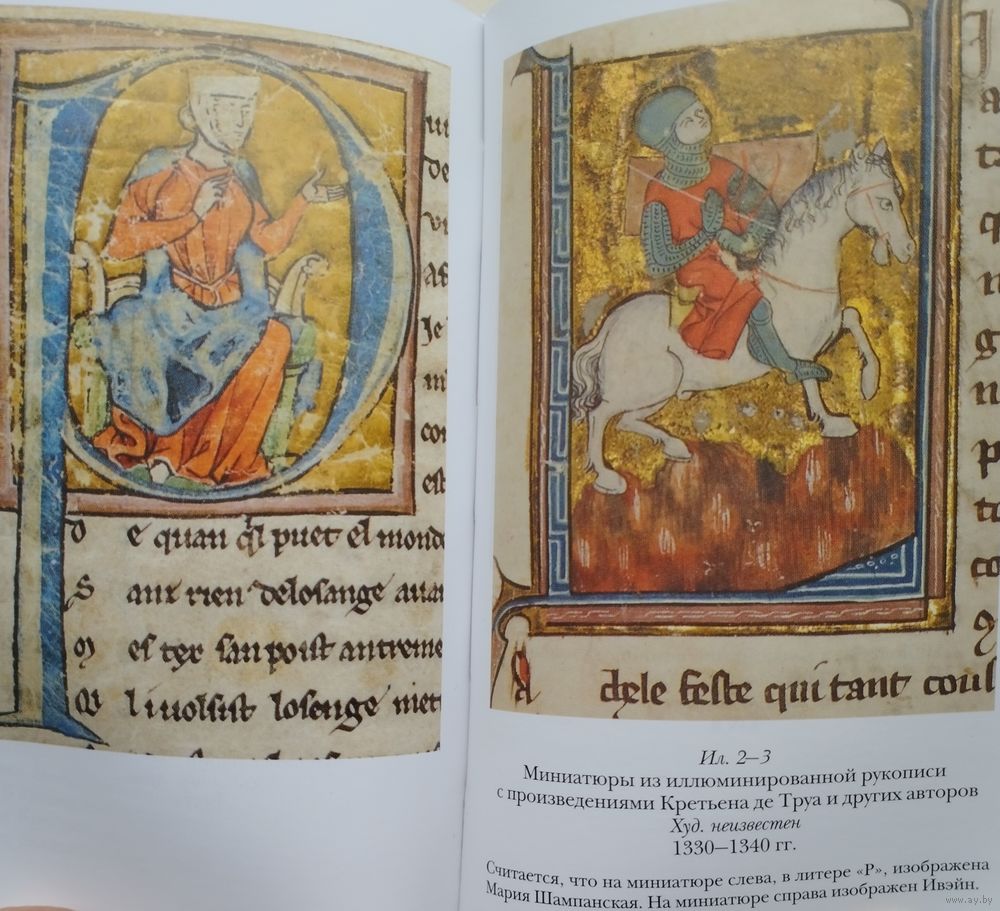 ui
de
vi
as
Je
m
con
est
D e quan ql puet el monde
S anz rien delosange auan
M es tex san poist autreme
Q li uolsist losenge mett
dele feste qui tant cous
Ил. 2–3
Миниатюры из иллюминированной рукописи
с произведениями Кретьена де Труа и других авторов
Худ. неизвестен
1330–1340 гг.
Считается, что на миниатюре слева, в литере «Р», изображена
Мария Шампанская. На миниатюре справа изображен Ивэйн.
www.ay.by